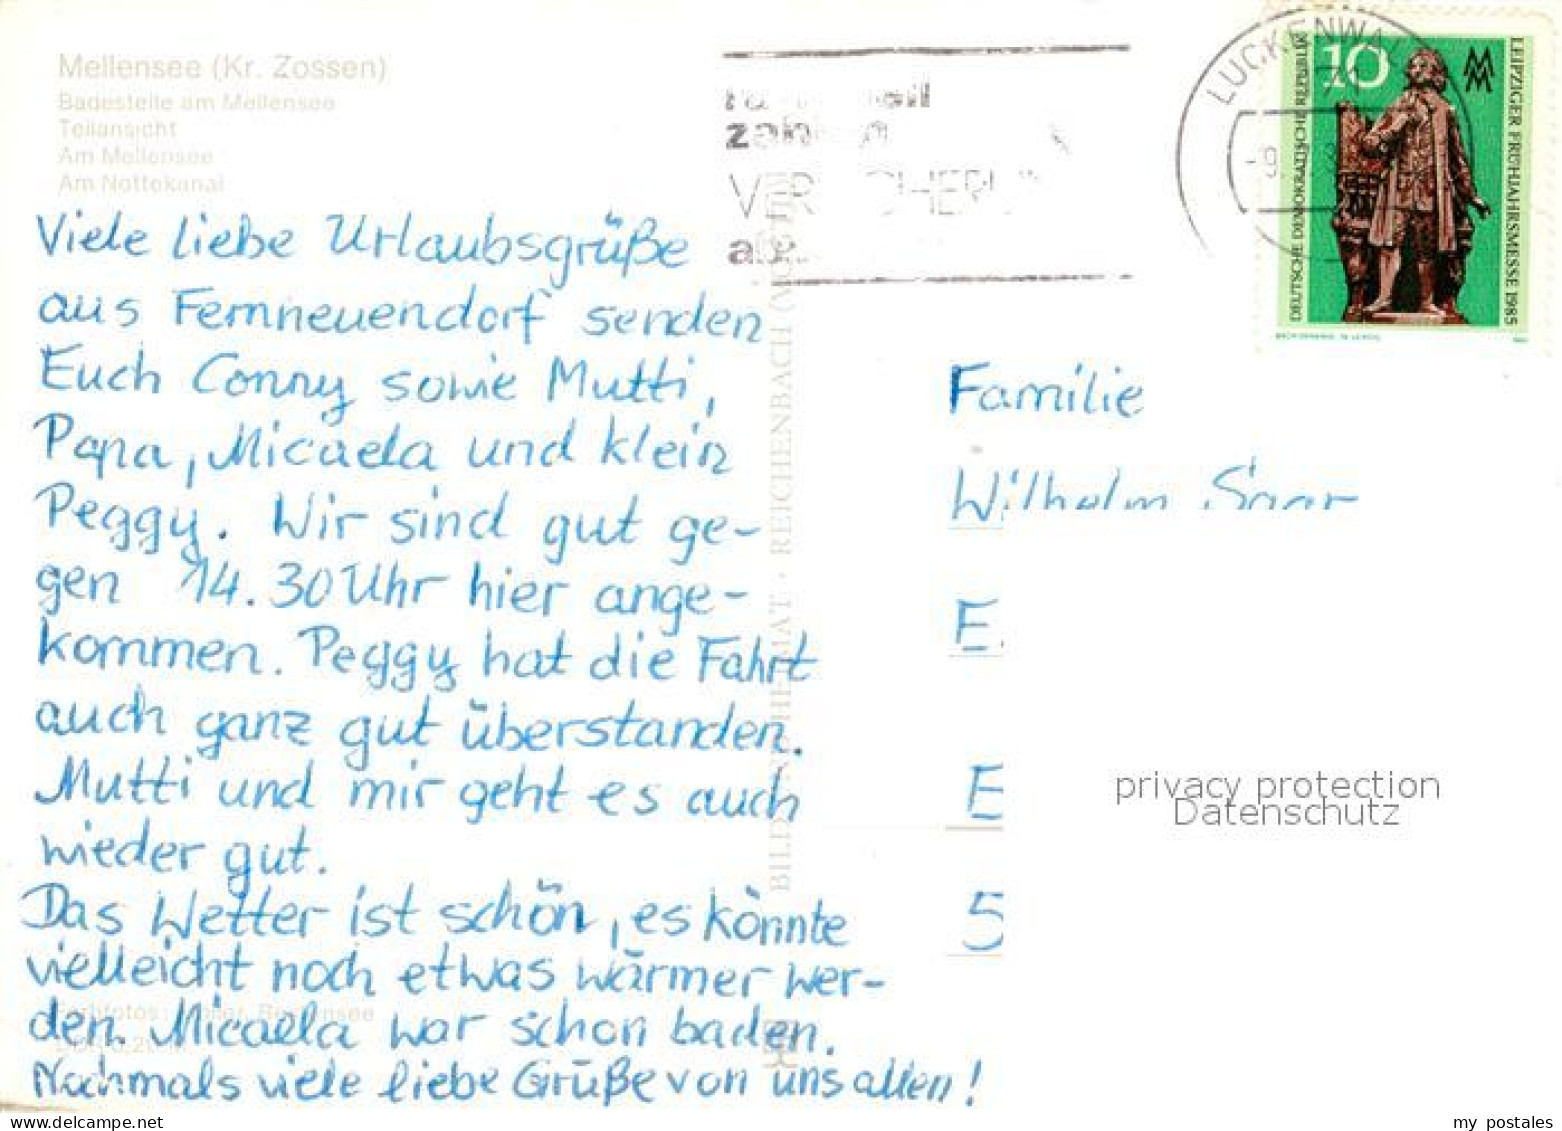 Mellensee (Kr. Zossen)
Badestelle am Mellensee
Teilansicht
Am Mellensee
Am Nottekanal
Viele liebe Urlaubsgrüße
aus Fernneuendorf senden
Euch Conny sowie Mutti,
Papa, Micaela und klein
Peggy. Wir sind gut ge-
gen 14.30 Uhr hier ange-
kommen. Peggy hat die Fahrt
auch ganz gut überstanden.
Mutti und mir geht es auch
wieder gut.
Das Wetter ist schön, es könnte
vielleicht noch etwas wärmer wer-
den. Micaela war schon baden.
Nochmals viele liebe Grüße von uns allen!
BILD UND HEIMAT · REICHENBACH
LUCKENWAL
10
MM
DEUTSCHE DEMOKRATISCHE REPUBLIK
LEIPZIGER FRÜHJAHRSMESSE 1985
Familie
Wilhelm Saar
E
E
5
privacy protection
Datenschutz
www.delcampe.net
my_postales